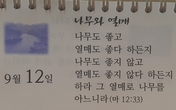 나무와 열매
나무도 좋고
열매도 좋다 하든지
나무도 좋지 않고
열매도 좋지 않다 하든지
하라 그 열매로 나무를
아느니라 (마 12:33)
9월 12일